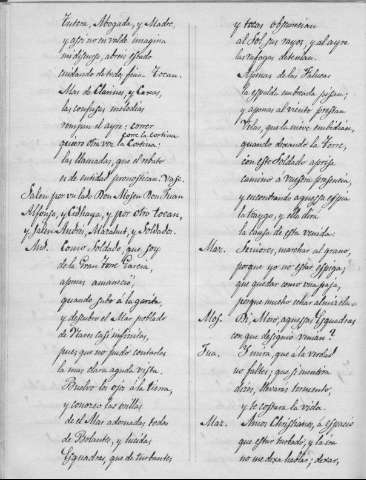 Tutora, Abogada, y Madre,
y assi no en valde imagina
mi discurso, abreis estado
cuidando de todo fina. Tocan.
Mas de Clarines, y Caxas,
las confusas melodias
rompen el ayre; correr
corre la cortina
quiero otra vez la Cortina;
las llamadas, que el rebato
de entidad pronostican. Vase.
Salen por un lado Don Mosen Don Juan
Alfonso, y , y por otro tocan,
y salen Andres, Marabut, y Soldados.
And. Como Soldado, que soy
de la Gran Torre Garcia,
apenas amaneció,
quando subo à la garita,
y descubro el Mar poblado
de Naves casi infinitas,
pues que no pudo contarlas
la mas clara aguda vista.
Buelvo los ojos à la tierra,
y conozco las orillas
de el Mar adornadas todas
de Bolantes, y lucidas
Esquadras, que de turbantes
y tocas obscurecian
al Sol sus rayos, y al ayre
las rafagas detenian.
Apenas de las Felucas
la espalda embreada pisan;
apenas al viento prestan
Velas, que la nieve embidian,
quando dexando la Torre,
con este Soldado aprisa
camino a vuestra presencia,
y encontrando aquessa espia
la traygo, y ella dira
la causa de esta venida.
Mar. Señores, marchar al grano,
porque yo no estoy espiga;
que quedar como una paja,
porque mucho echar almivar.
Mos. Di, Moro, aquessas Esquadras
con que designio venian?
Jua. Y mira, que à la verdad
no faltes; que si mentira
dices, llevaràs tormento,
y te costara la vida.
Mar. Amos Christianos, à espacio
que estar turbado, y la ira
no me dexa hablar; dexar,